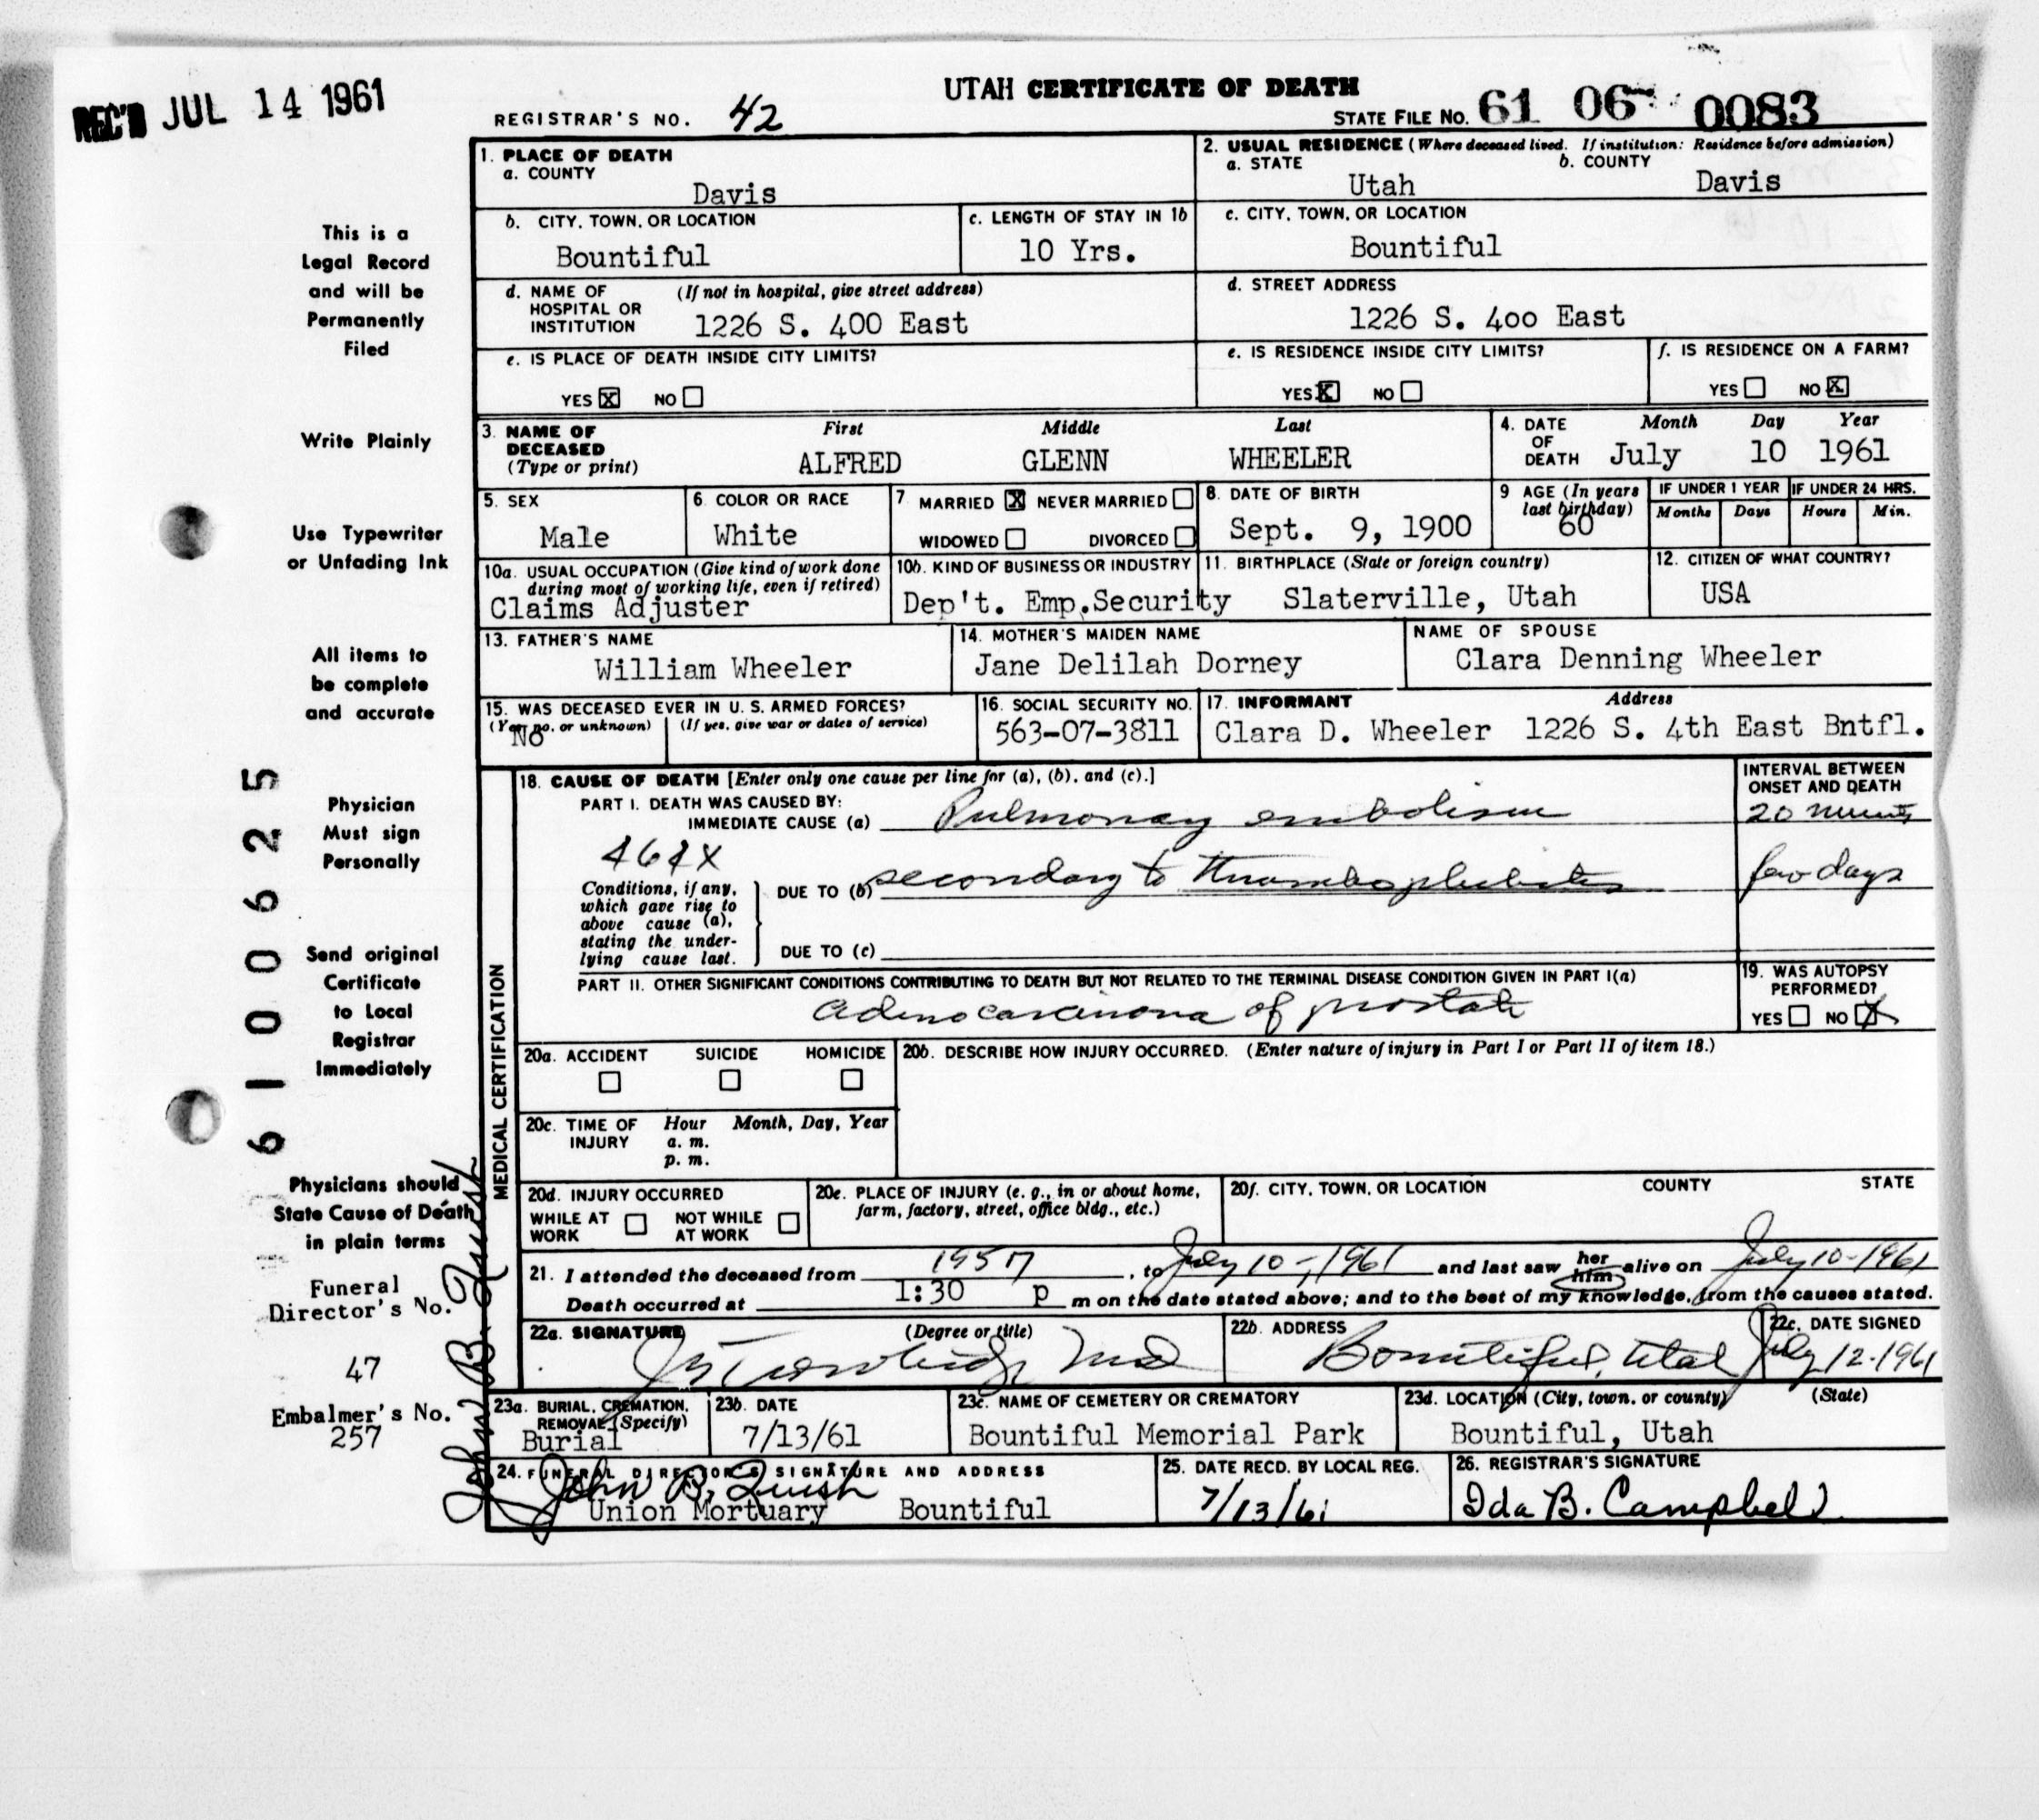 REC'D JUL 14 1961
UTAH CERTIFICATE OF DEATH
REGISTRAR'S NO. 42
STATE FILE No. 61 06 0083
1. PLACE OF DEATH
a. COUNTY
Davis
2. USUAL RESIDENCE (Where deceased lived. If institution: Residence before admission)
a. STATE b. COUNTY
Utah Davis
b. CITY, TOWN, OR LOCATION
Bountiful
c. LENGTH OF STAY IN 1b
10 Yrs.
c. CITY, TOWN, OR LOCATION
Bountiful
d. NAME OF HOSPITAL OR INSTITUTION (If not in hospital, give street address)
1226 S. 400 East
d. STREET ADDRESS
1226 S. 4oo East
e. IS PLACE OF DEATH INSIDE CITY LIMITS?
YES X NO
e. IS RESIDENCE INSIDE CITY LIMITS?
YES X NO
f. IS RESIDENCE ON A FARM?
YES NO X
3. NAME OF DECEASED (Type or print)
First Middle Last
ALFRED GLENN WHEELER
4. DATE OF DEATH
Month Day Year
July 10 1961
5. SEX
Male
6. COLOR OR RACE
White
7. MARRIED X NEVER MARRIED
WIDOWED DIVORCED
8. DATE OF BIRTH
Sept. 9, 1900
9 AGE (In years last birthday)
60
IF UNDER 1 YEAR
Months Days
IF UNDER 24 HRS.
Hours Min.
10a. USUAL OCCUPATION (Give kind of work done during most of working life, even if retired)
Claims Adjuster
10b. KIND OF BUSINESS OR INDUSTRY
Dep't. Emp.Security
11. BIRTHPLACE (State or foreign country)
Slaterville, Utah
12. CITIZEN OF WHAT COUNTRY?
USA
13. FATHER'S NAME
William Wheeler
14. MOTHER'S MAIDEN NAME
Jane Delilah Dorney
NAME OF SPOUSE
Clara Denning Wheeler
15. WAS DECEASED EVER IN U. S. ARMED FORCES?
(Yes, no. or unknown) (If yes, give war or dates of service)
No
16. SOCIAL SECURITY NO.
563-07-3811
17. INFORMANT Address
Clara D. Wheeler 1226 S. 4th East Bntfl.
MEDICAL CERTIFICATION
18. CAUSE OF DEATH [Enter only one cause per line for (a), (b), and (c).]
INTERVAL BETWEEN ONSET AND DEATH
PART I. DEATH WAS CAUSED BY:
IMMEDIATE CAUSE (a) Pulmonary embolism
20 minutes
464X
Conditions, if any, which gave rise to above cause (a), stating the underlying cause last.
DUE TO (b) secondary to thrombophlebitis
few days
DUE TO (c)
PART II. OTHER SIGNIFICANT CONDITIONS CONTRIBUTING TO DEATH BUT NOT RELATED TO THE TERMINAL DISEASE CONDITION GIVEN IN PART I(a)
adenocarcinoma of prostate
19. WAS AUTOPSY PERFORMED?
YES NO X
20a. ACCIDENT SUICIDE HOMICIDE
20b. DESCRIBE HOW INJURY OCCURRED. (Enter nature of injury in Part I or Part II of item 18.)
20c. TIME OF INJURY Hour Month, Day, Year
a. m.
p. m.
20d. INJURY OCCURRED
WHILE AT WORK NOT WHILE AT WORK
20e. PLACE OF INJURY (e. g., in or about home, farm, factory, street, office bldg., etc.)
20f. CITY, TOWN, OR LOCATION COUNTY STATE
21. I attended the deceased from 1957, to July 10-, 1961 and last saw her him alive on July 10-1961
Death occurred at 1:30 p m on the date stated above; and to the best of my knowledge, from the causes stated.
22a. SIGNATURE (Degree or title)
MD
22b. ADDRESS
Bountiful, Utah
22c. DATE SIGNED
July 12-1961
23a. BURIAL, CREMATION, REMOVAL (Specify)
Burial
23b. DATE
7/13/61
23c. NAME OF CEMETERY OR CREMATORY
Bountiful Memorial Park
23d. LOCATION (City, town, or county) (State)
Bountiful, Utah
24. FUNERAL DIRECTOR'S SIGNATURE AND ADDRESS
John B. Quish
Union Mortuary Bountiful
25. DATE RECD. BY LOCAL REG.
7/13/61
26. REGISTRAR'S SIGNATURE
Ida B. Campbell
This is a
Legal Record
and will be
Permanently
Filed
Write Plainly
Use Typewriter
or Unfading Ink
All items to
be complete
and accurate
Physician
Must sign
Personally
Send original
Certificate
to Local
Registrar
Immediately
Physicians should
State Cause of Death
in plain terms
Funeral
Director's No.
47
Embalmer's No.
257
John B. Quish
6100625